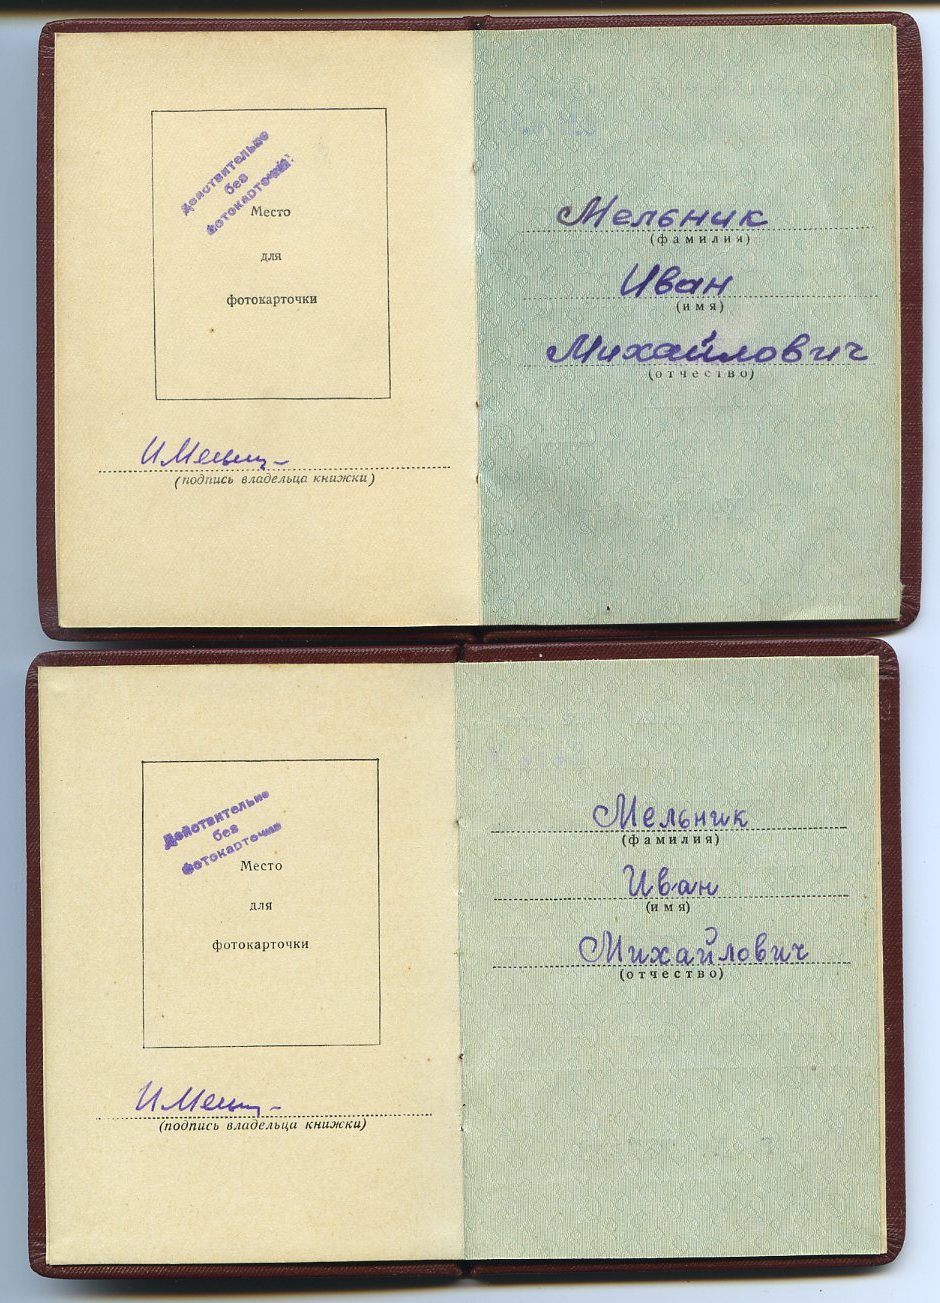 Действительно
без
фотокарточки
Место
для
фотокарточки
(подпись владельца книжки)
Мельник
(фамилия)
Иван
(имя)
Михайлович
(отчество)
Действительно
без
фотокарточки
Место
для
фотокарточки
(подпись владельца книжки)
Мельник
(фамилия)
Иван
(имя)
Михайлович
(отчество)